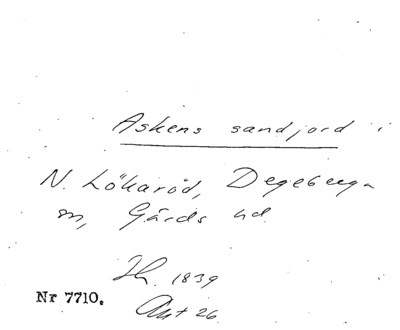 Askens sandjord i
N. Lökaröd, Degeberga
sn, Gärds hd
Ih. 1839
Nr 7710.
Akt 26